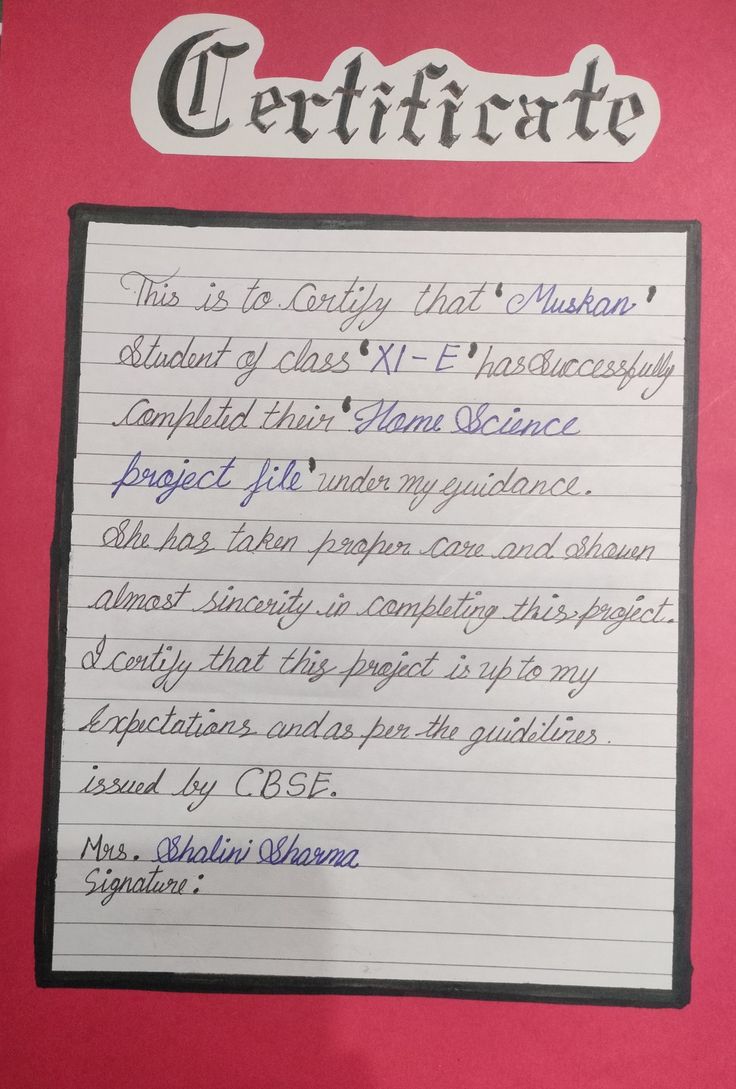 Certificate
This is to Certify that 'Muskan'
Student of class 'XI-E' has Successfully
Completed their 'Home Science
project file' under my guidance.
She has taken proper care and Shown
almost sincerity in completing this project.
I certify that this project is up to my
Expectations and as per the guidelines.
issued by CBSE.
Mrs. Shalini Sharma
Signature: